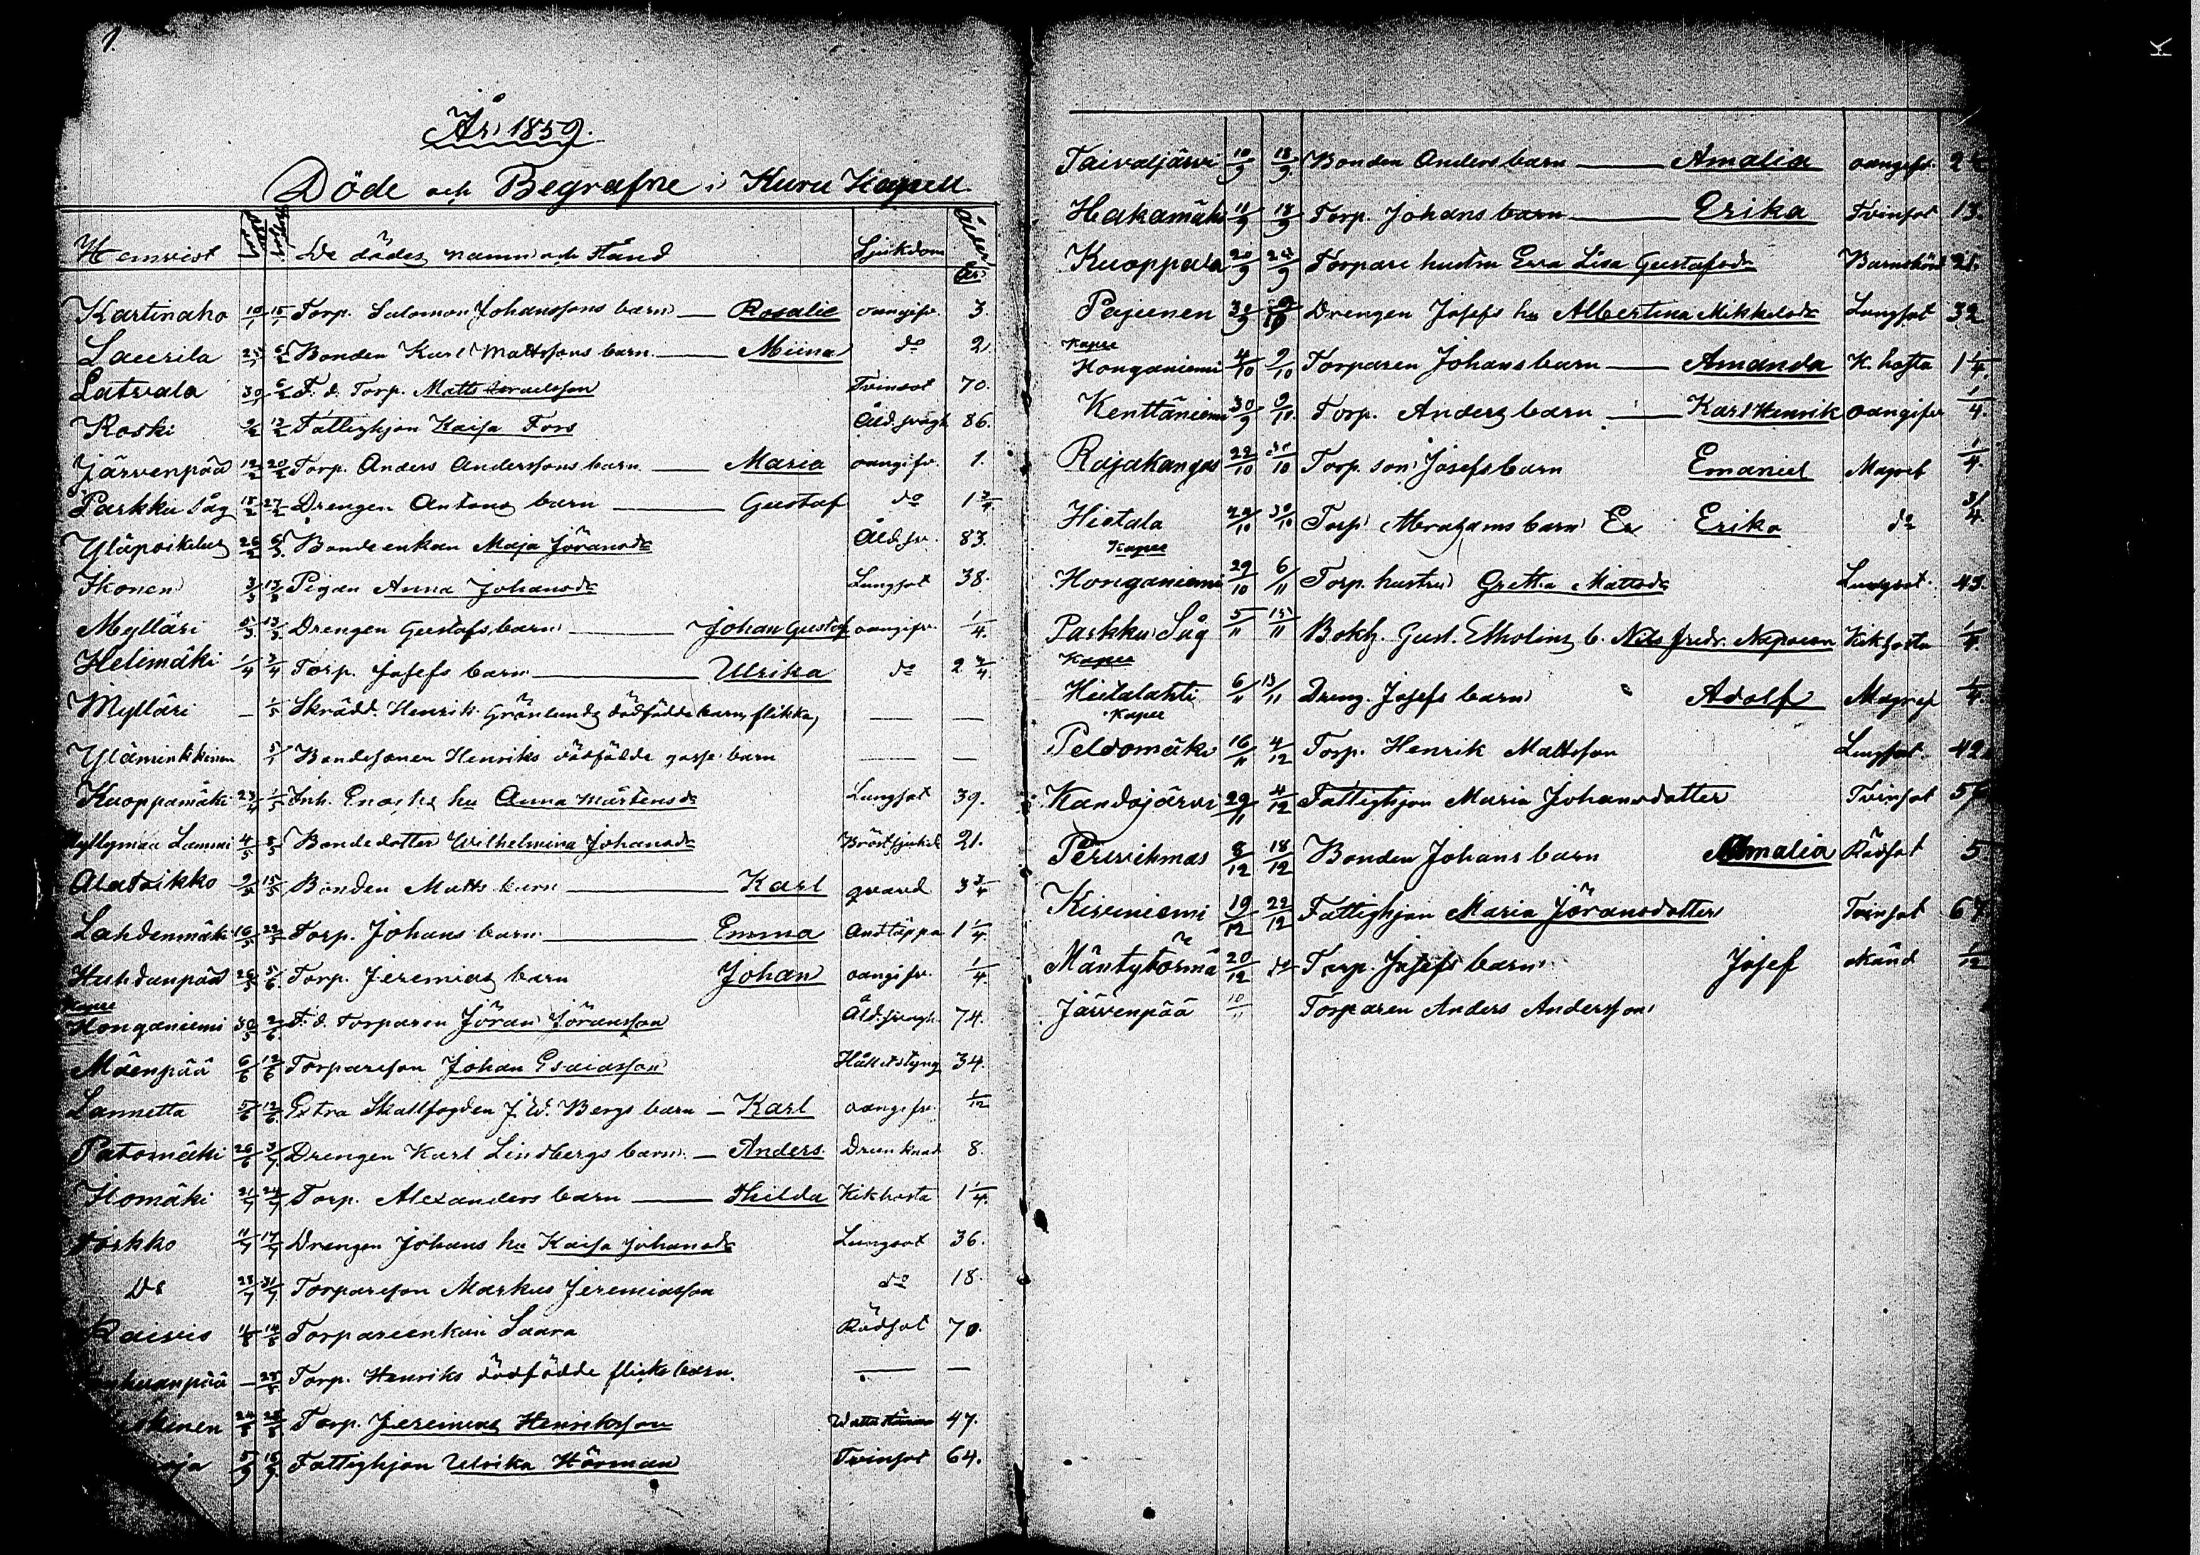 1.
År 1859.
Döde och Begrafne i Kuru Kapell
Hemvist De dödes namn och stånd Sjukdom Ålder
År
Kartinaho 10/1 15/1 Torp. Salomon Johanssons barn — Rosalie oangifv. 3
Laurila 6/2 Bonden Karl Mattssons barn — Miina do 2
Latvala 30/1 6/2 F. d. Torp. Matts Israelsson Tvinsot 70.
Koski 12/2 Fattighjon Kaisa Fors Åld.svagh 86.
Järvenpää 12/2 20/2 Torp. Anders Anderssons barn — Maria oangifv. 1.
Parkku såg 18/2 27/2 Drengen Antons barn — Gustaf do 1 3/4
Yläpoikelus 26/2 6/3 Bondeenkan Maja Jöransdr Åld.sv. 83.
Ikonen 3/3 13/3 Pigan Anna Johansdr Lungsot 38.
Mylläri 5/3 13/3 Drengen Gustafs barn — Johan Gustaf oangifv. 1/4.
Helimäki 1/4 3/4 Torp. Josefs barn — Ulrika do 2 3/4.
Mylläri — 1/5 Skrädd. Henrik Grönlunds dödfödde barn, flikka, — —
Yläminkkinen Bondesonen Henriks dödfödde gosse barn — —
Kuoppamäki 23/4 1/5 Inh. Enochs hu Anna Mårtensdr Lungsot 39.
Myllymaa Lammi 4/5 8/5 Bondedotter Wilhelmina Johansdr Bröstsjukd. 21.
Alatoikko 9/5 15/5 Bonden Matts barn — Karl qvard 3 3/4
Lahdenmäki 16/5 22/5 Torp. Johans barn — Emma Andtäppa 1 1/4.
Huhdanpää 26/5 5/6 Torp. Jeremias barn Johan oangifv. 1/4.
Kapee
Honganiemi 30/5 2/6 F. d. Torparen Jöran Jöransson Åld.svagh. 74.
Mäenpää 6/6 12/6 Torpareson Johan Esaiasson Håll et styng 34.
Lannetta 5/6 12/6 Extra Skallfogden J. W. Bergs barn — Karl oangifv. 1/12
Patomäki 26/6 3/7 Drengen Karl Lindbergs barn — Anders Drunknad 8.
Ilomäki 21/7 24/7 Torp. Alexanders barn — Thilda Kikhosta 1 1/4.
11/7 17/7 Drengen Johans hu Kaisa Johansdr Lungsot 36.
Do 31/7 Torpareson Markus Jeremiasson do 18.
Raisis 14/8 Torpareenkan Saara Rödsot 70.
— 28/8 Torp. Henriks dödfödde flicke barn. — —
24/8 28/8 Torp. Jeremias Henriksson 47.
5/9 Fattighjon Ulrika Hörman Tvinsot 64.
Taivaljärvi 10/9 18/9 Bonden Anders barn — Amalia oangifv. 2
Hakamäki 11/9 18/9 Torp. Johans barn — Erika Tvinsot 13.
Kuoppala 20/9 25/9 Torpare hustru Eva Lisa Gustafsdr Barnsbörd 21.
Pajunen Drengen Josefs hu Albertina Mikkelsdr Lungsot 32
Kapee
Honganiemi 4/10 9/10 Torparen Johans barn — Amanda K. hosta 1 1/4.
Kenttäniemi 30/9 9/10 Torp. Anders barn — Karl Henrik oangifv 1/4.
Rajakangas 22/10 30/10 Torp. son Josefs barn Emanuel Magref 1/4.
Hietala 22/10 30/10 Torp Abrahams barn Er Erika do 3/4
Kapee
Honganiemi 29/10 6/11 Torp. hustru Gretha Mattsdr Lungsot 43.
Parkku Såg 5/11 15/11 Bokh. Gust. Etholins b. Nils Fredr. Napoleon Kikhosta 1/4.
Kapee
Hietalahti 6/11 13/11 Dreng. Josefs barn Adolf Magref 1/4.
Kapee
Peldomäki 16/11 4/12 Torp. Henrik Mattsson Lungsot. 42
Kandojärvi 29/11 4/12 Fattighjon Maria Johansdotter Tvinsot 5
8/12 18/12 Bonden Johans barn Amalia Rödsot 5
Kiviniemi 19/12 22/12 Fattighjon Maria Jöransdotter Tvinsot 67
Mäntytörmä 20/12 do Torp. Josefs barn Josef okänd 1/12
Järvenpää 10/11 Torparen Anders Andersson
K